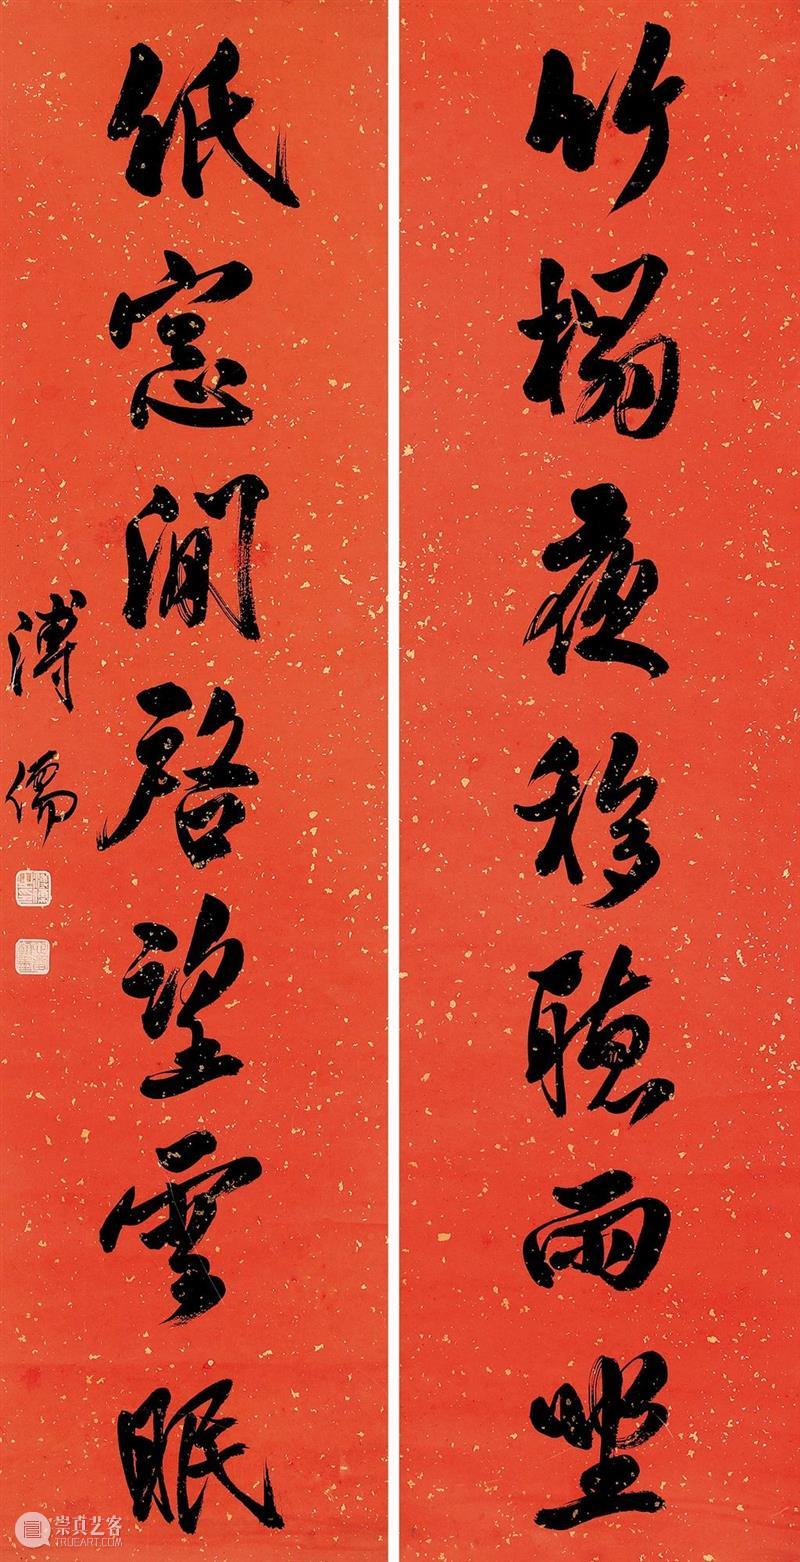 竹榻夜移聽雨坐
紙窓閒啓望雲眠
溥儒
崇真艺客
TRUEART.COM